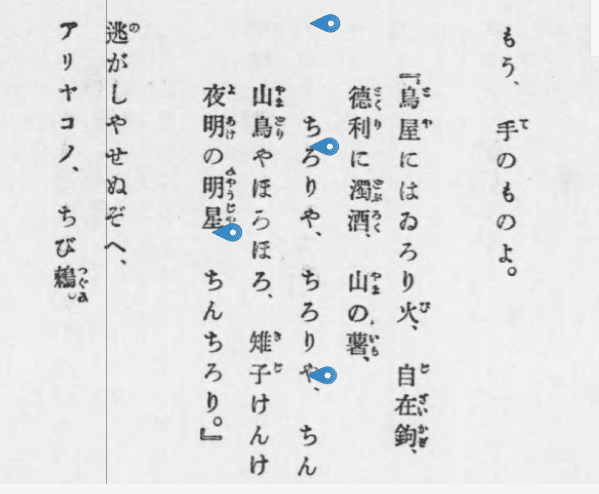 もう、手のものよ。
『鳥屋にはゐろり火、自在鉤、
德利に濁酒、山の薯、
ちろりや、ちろりや、ちん
山鳥やほろほろ、雉子けんけ
夜明の明星 ちんちろり。』
逃がしやせぬぞへ、
アリヤコノ、ちび鶫。